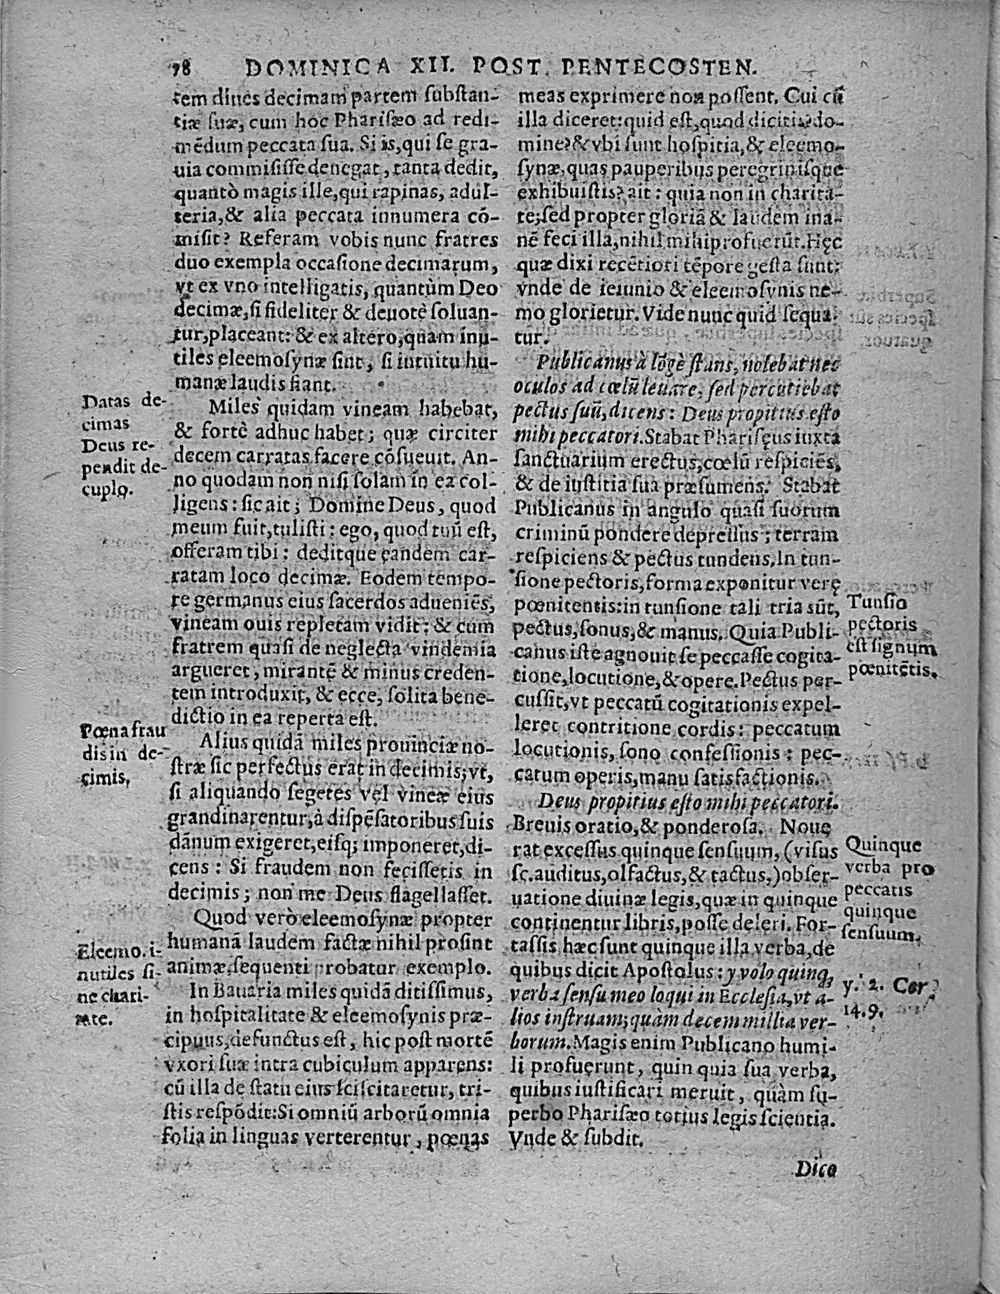 78 DOMINICA XII. POST. PENTECOSTEN.
tem diues decimam partem substan-
tiæ suæ, cum hoc Pharisæo ad redi-
mēdum peccata sua. Si is, qui se gra-
uia commisisse denegat, tanta dedit,
quantò magis ille, qui rapinas, adul-
teria, & alia peccata innumera cō-
misit? Referam vobis nunc fratres
duo exempla occasione decimarum,
vt ex vno intelligatis, quantùm Deo
decimæ, si fideliter & deuotè soluan-
tur, placeant: & ex altero, quàm inu-
tiles eleemosynæ sint, si intuitu hu-
manæ laudis fiant.
Datas de-
cimas
Deus re-
pendit de-
cuplo.
Miles quidam vineam habebat,
& fortè adhuc habet; quæ circiter
decem carratas facere cōsueuit. An-
no quodam non nisi solam in ea col-
ligens: sic ait; Domine Deus, quod
meum fuit, tulisti: ego, quod tuū est,
offeram tibi: deditque eandem car-
ratam loco decimæ. Eodem tempo-
re germanus eius sacerdos adueniēs,
vineam ouis repletam vidit: & cum
fratrem quasi de neglecta vindemia
argueret, mirantē & minus creden-
tem introduxit, & ecce, solita bene-
dictio in ea reperta est.
Pœna frau
dis in de-
cimis,
Alius quidā miles prouinciæ no-
stræ sic perfectus erat in decimis, vt,
si aliquando segetes vel vineæ eius
grandinarentur, à dispēsatoribus suis
dānum exigeret, eisq; imponeret, di-
cens: Si fraudem non fecissetis in
decimis; non me Deus flagellasset.
Quod verò eleemosynæ propter
humanā laudem factæ nihil prosint
animæ, sequenti probatur exemplo.
Eleemo. i-
nutiles si-
ne chari-
tate.
In Bauaria miles quidā ditissimus,
in hospitalitate & eleemosynis præ-
cipuus, defunctus est, hic post mortē
vxori suæ intra cubiculum apparens:
cū illa de statu eius sciscitaretur, tri-
stis respōdit: Si omniū arborū omnia
folia in linguas verterentur, pœnas
meas exprimere non possent. Cui cū
illa diceret: quid est, quod dicitis do-
mine? & vbi sunt hospitia, & eleemo-
synæ, quas pauperibus peregrinisque
exhibuistis? ait: quia non in charita-
te; sed propter gloriā & laudem ina-
nē feci illa, nihil mihi profuerūt. Hęc
quæ dixi recētiori tēpore gesta sunt;
vnde de ieiunio & eleemosynis ne-
mo glorietur. Vide nunc quid sequa-
tur.
Publicanus à lōgè stans, nolebat nec
oculos ad cœlū leuare, sed percutiebat
pectus suū, dicens: Deus propitius esto
mihi peccatori. Stabat Pharisęus iuxta
sanctuarium erectus, cœlū respiciēs,
& de iustitia sua præsumens. Stabat
Publicanus in angulo quasi suorum
criminū pondere depressus; terram
respiciens & pectus tundens, In tun-
sione pectoris, forma exponitur verę
pœnitentis: in tunsione tali tria sūt,
pectus, sonus, & manus. Quia Publi-
canus iste agnouit se peccasse cogita-
tione, locutione, & opere. Pectus per-
cussit, vt peccatū cogitationis expel-
leret contritione cordis: peccatum
locutionis, sono confessionis: pec-
catum operis, manu satisfactionis.
Tunsio
pectoris
est signum
pœnitētis.
Deus propitius esto mihi peccatori.
Breuis oratio, & ponderosa. Noue
rat excessus quinque sensuum, (visus
sc. auditus, olfactus, & tactus,) obser-
uatione diuinæ legis, quæ in quinque
continentur libris, posse deleri. For-
tassis hæc sunt quinque illa verba, de
quibus dicit Apostolus: y volo quinq,
verba sensu meo loqui in Ecclesia, vt a-
lios instruam; quàm decem millia ver-
borum. Magis enim Publicano humi-
li profuerunt, quin quia sua verba,
quibus iustificari meruit, quàm su-
perbo Pharisæo totius legis scientia.
Vnde & subdit.
Quinque
verba pro
peccatis
quinque
sensuum.
y. 2. Cor.
14. 9.
Dico